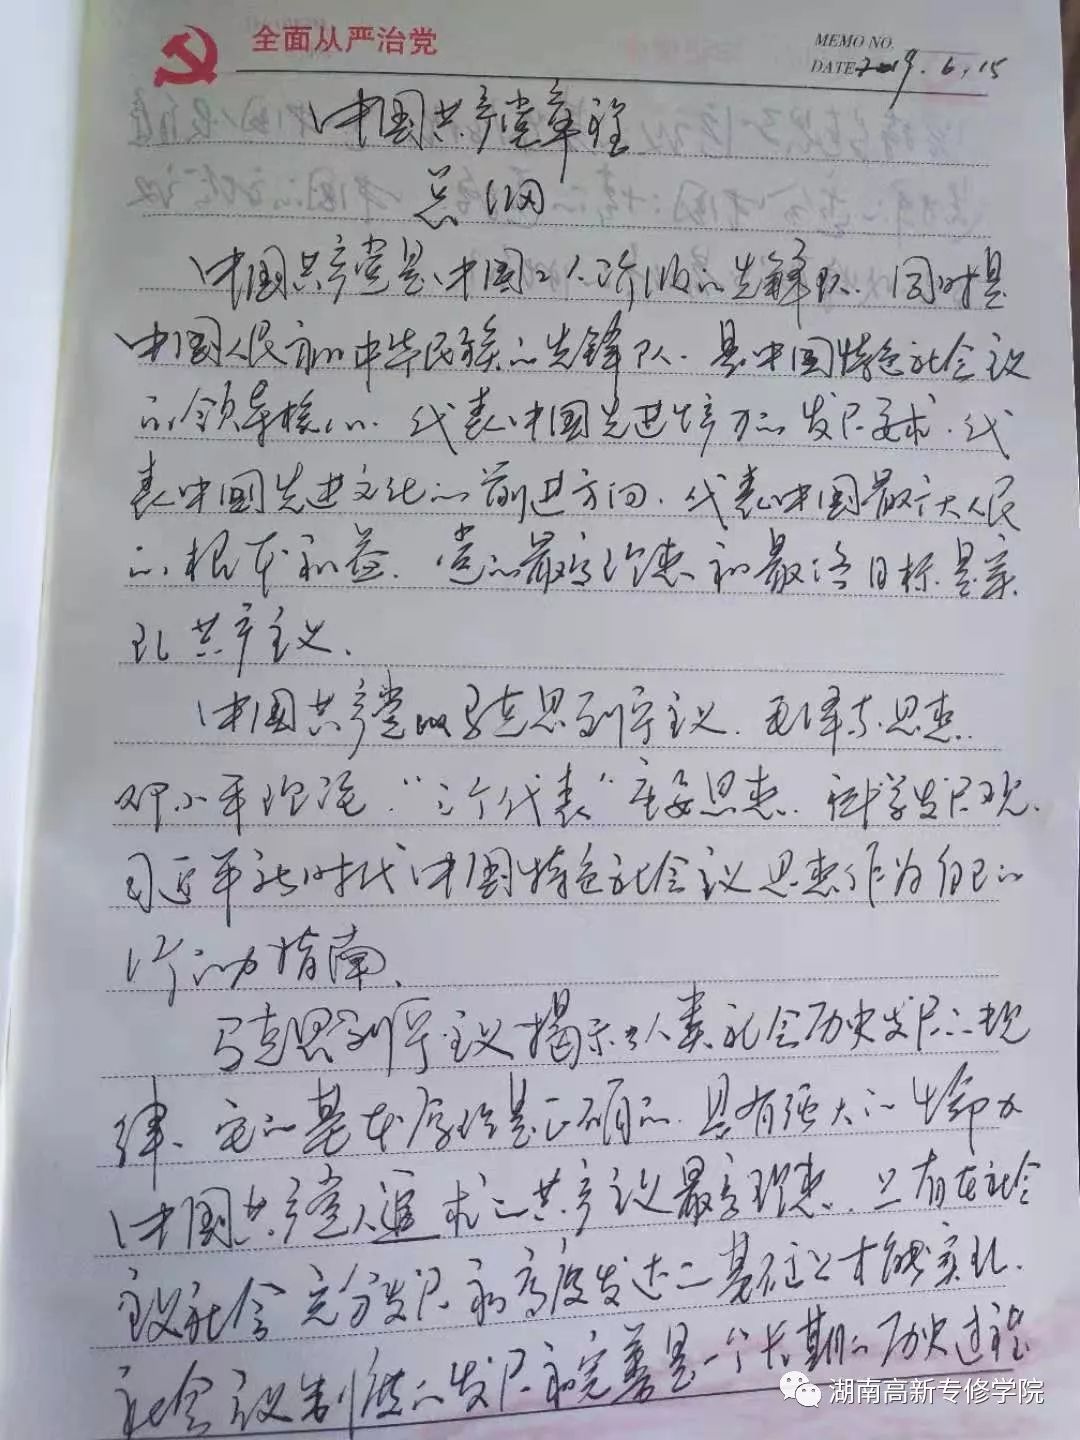 全面从严治党
MEMO NO.
DATE 2019.6.15
中国共产党章程
总纲
中国共产党是中国工人阶级的先锋队.同时是
中国人民和中华民族的先锋队.是中国特色社会主义
的领导核心.代表中国先进生产力的发展要求.代
表中国先进文化的前进方向.代表中国最广大人民
的根本利益.党的最高理想和最终目标是实
现共产主义.
中国共产党以马克思列宁主义.毛泽东思想.
邓小平理论.“三个代表”重要思想.科学发展观.
习近平新时代中国特色社会主义思想作为自己的
行动指南.
马克思列宁主义揭示了人类社会历史发展的规
律.它的基本原理是正确的.具有强大的生命力
中国共产党人追求的共产主义最高理想.只有在社会
主义社会充分发展和高度发达的基础上才能实现.
社会主义制度的发展和完善是一个长期的历史过程
湖南高新专修学院